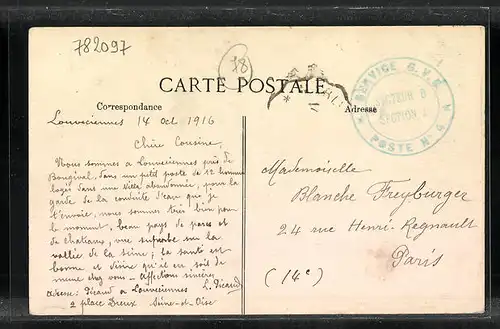 782097
78
CARTE POSTALE
Correspondance
Adresse
SERVICE G.V.C
SECTEUR B
SECTION
POSTE N° 4
Louveciennes 14 Oct 1916
Chère Cousine,
Nous sommes a Louveciennes près de
Bougival, dans un petit poste de 12 hommes
logés dans une villa abandonnée, pour la
garde de la conduite d'eau que je
t'envoie, nous sommes très bien pour
le moment, beau pays de parcs et
de chateaux, vue superbe sur la
vallée de la Seine; la santé est
bonne et désire qu'il en soit de
meme chez vous - Affections sincères
L. Picard
adresse: Picard a Louveciennes
2 place Dreux Seine-et-Oise
Mademoiselle
Blanche Freyburger
24 rue Henri-Regnault
Paris
(14e)